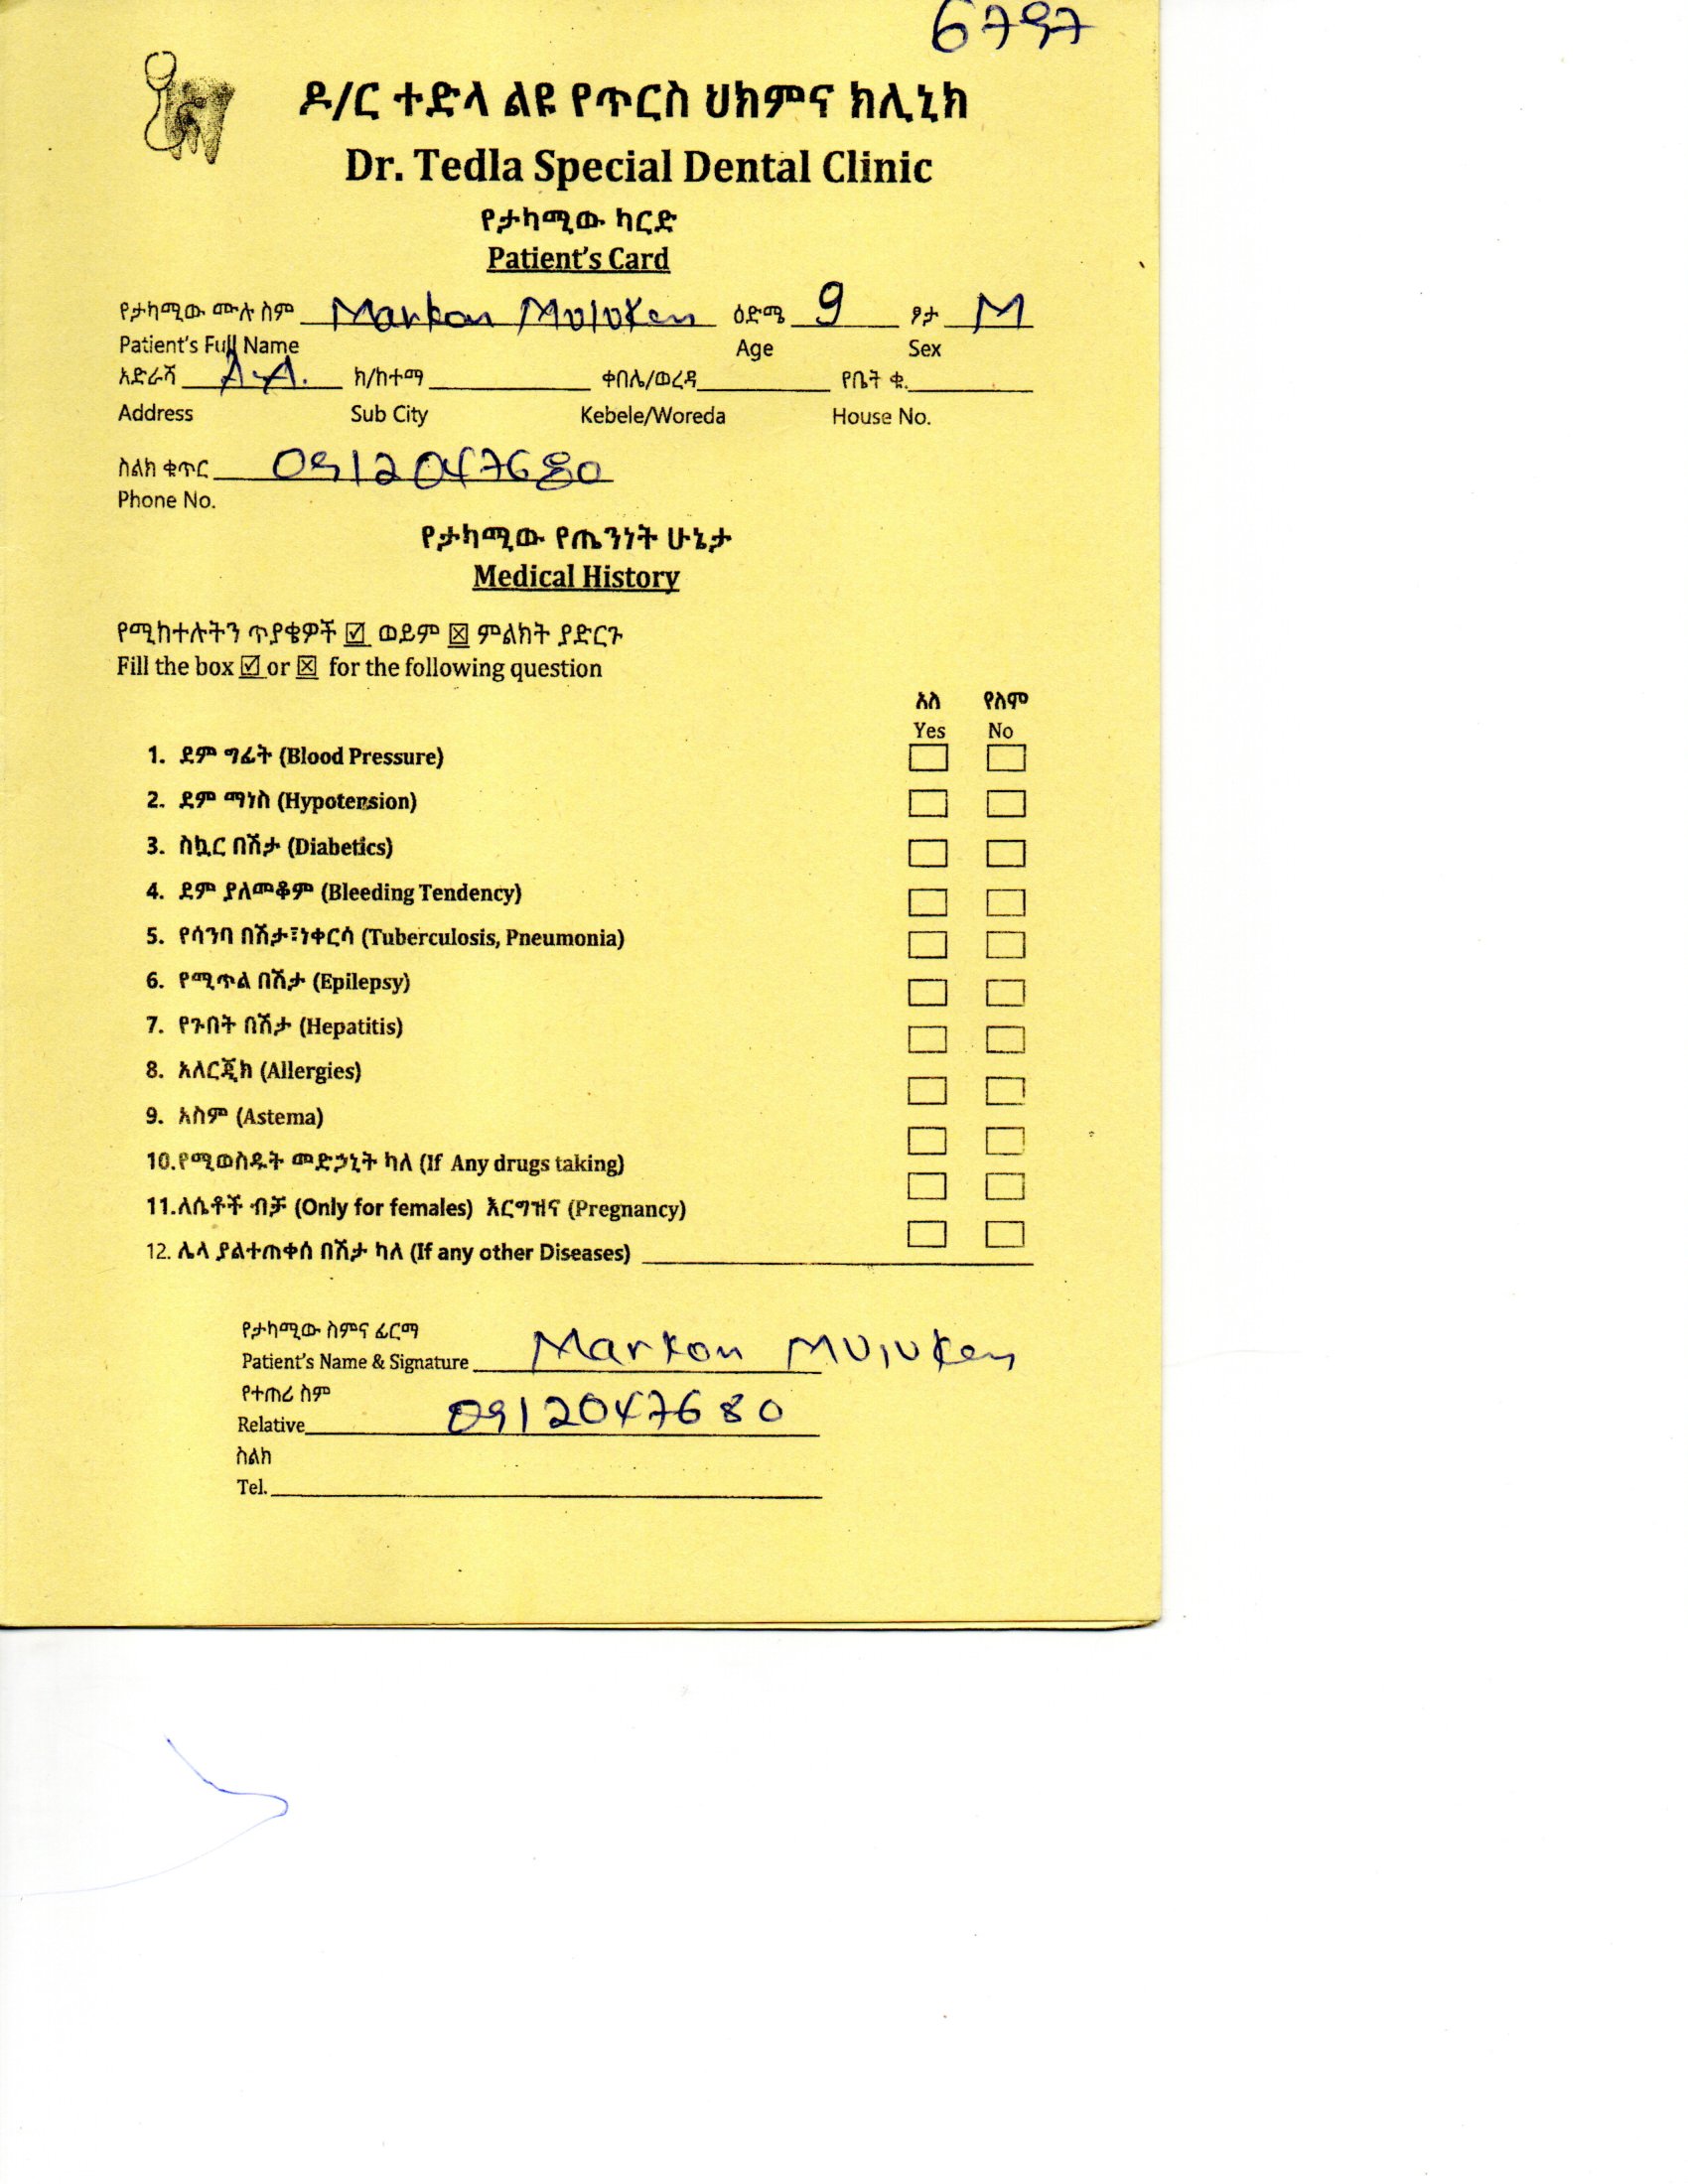 6797
ዶ/ር ተድላ ልዩ የጥርስ ህክምና ክሊኒክ
Dr. Tedla Special Dental Clinic
የታካሚው ካርድ
Patient's Card
የታካሚው ሙሉ ስም Markon Muluken ዕድሜ 9 ፆታ M
Patient's Full Name Age Sex
አድራሻ A.A. ክ/ከተማ ቀበሌ/ወረዳ የቤት ቁ.
Address Sub City Kebele/Woreda House No.
ስልክ ቁጥር 0912047680
Phone No.
የታካሚው የጤንነት ሁኔታ
Medical History
የሚከተሉትን ጥያቄዎች ☑ ወይም ☒ ምልክት ያድርጉ
Fill the box ☑ or ☒ for the following question
አለ የለም
Yes No
1. ደም ግፊት (Blood Pressure)
2. ደም ማነስ (Hypotension)
3. ስኳር በሽታ (Diabetics)
4. ደም ያለመቆም (Bleeding Tendency)
5. የሳንባ በሽታ፣ነቀርሳ (Tuberculosis, Pneumonia)
6. የሚጥል በሽታ (Epilepsy)
7. የጉበት በሽታ (Hepatitis)
8. አለርጂክ (Allergies)
9. አስም (Astema)
10.የሚወስዱት መድኃኒት ካለ (If Any drugs taking)
11.ለሴቶች ብቻ (Only for females) እርግዝና (Pregnancy)
12. ሌላ ያልተጠቀሰ በሽታ ካለ (If any other Diseases)
የታካሚው ስምና ፊርማ
Patient's Name & Signature Markon Muluken
የተጠሪ ስም
Relative 0912047680
ስልክ
Tel.